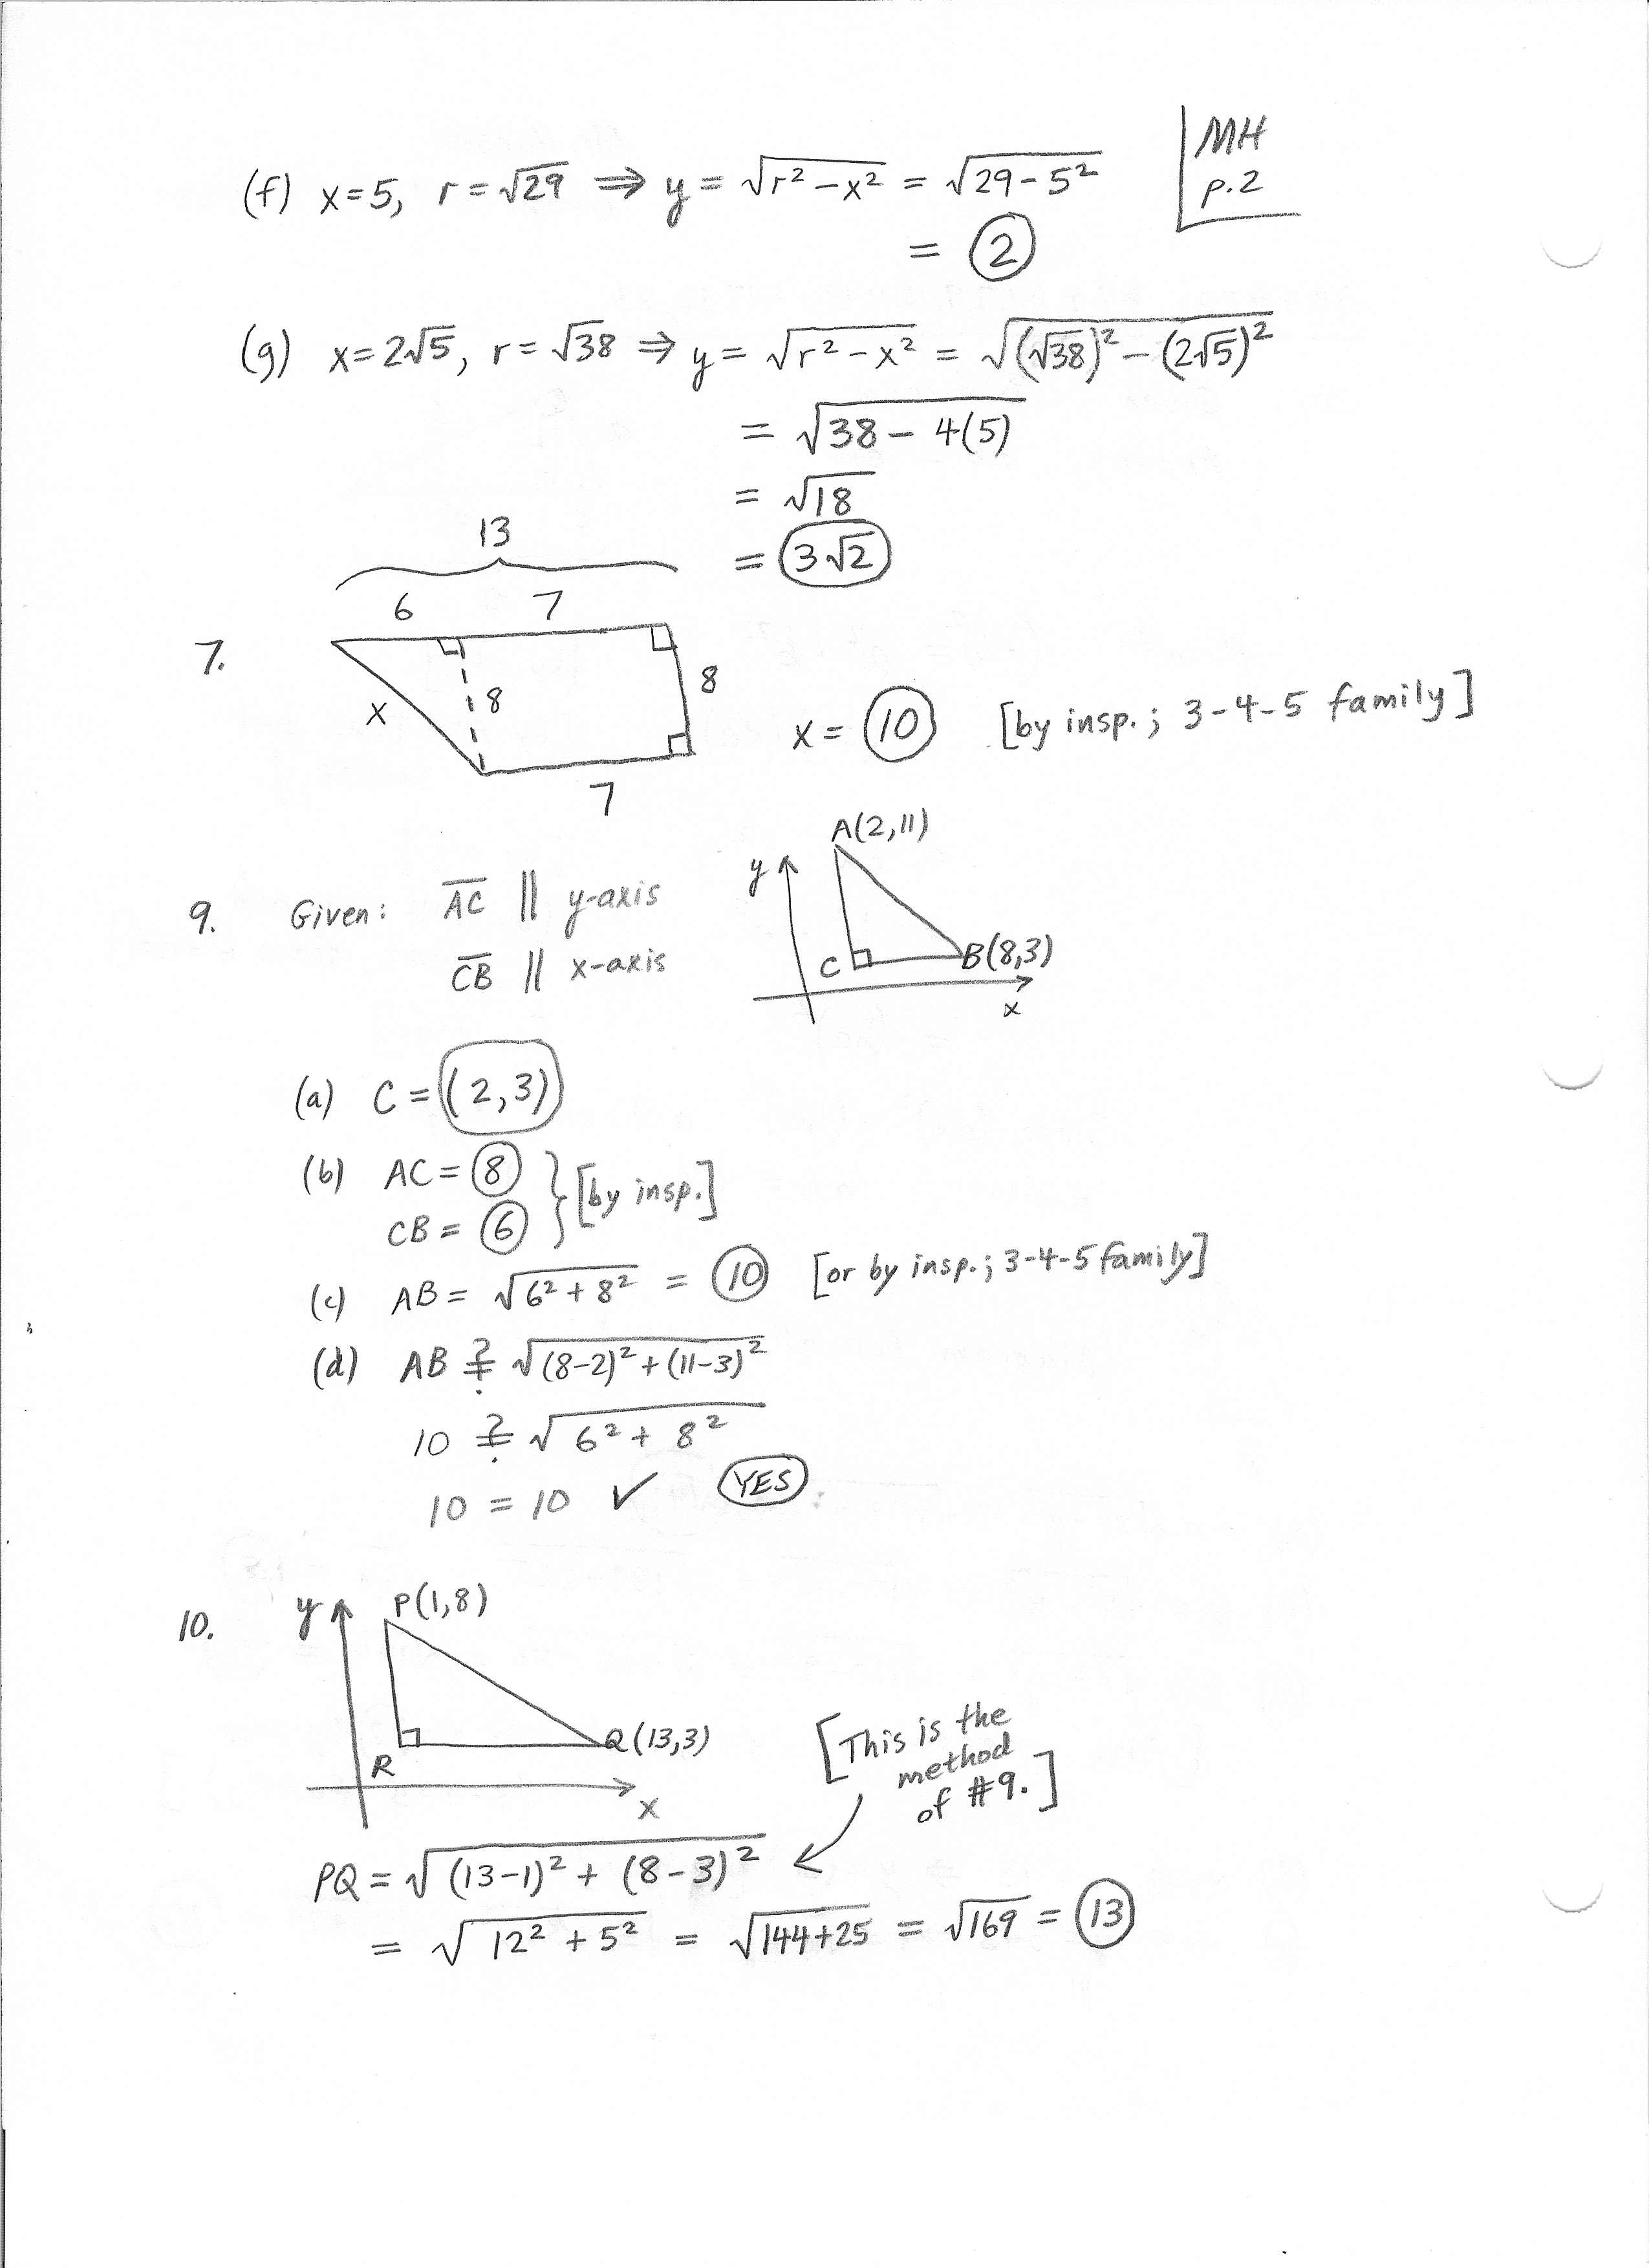 MH
p.2
(f) x=5, r=√29 ⇒ y = √(r² – x²) = √(29 – 5²)
= 2
(g) x=2√5, r=√38 ⇒ y = √(r² – x²) = √((√38)² – (2√5)²)
= √(38 – 4(5))
= √18
= 3√2
13
6 7
7.
x 8 8
7
x = 10 [by insp.; 3-4-5 family]
9. Given: AC || y-axis
CB || x-axis
A(2,11)
y
C B(8,3)
x
(a) C = (2,3)
(b) AC = 8
CB = 6 } [by insp.]
(c) AB = √(6² + 8²) = 10 [or by insp.; 3-4-5 family]
(d) AB ≟ √((8–2)² + (11–3)²)
10 ≟ √(6² + 8²)
10 = 10 ✓ YES
10.
y P(1,8)
R Q(13,3)
x
[This is the
method
of #9.]
PQ = √((13–1)² + (8–3)²)
= √(12² + 5²) = √(144+25) = √169 = 13